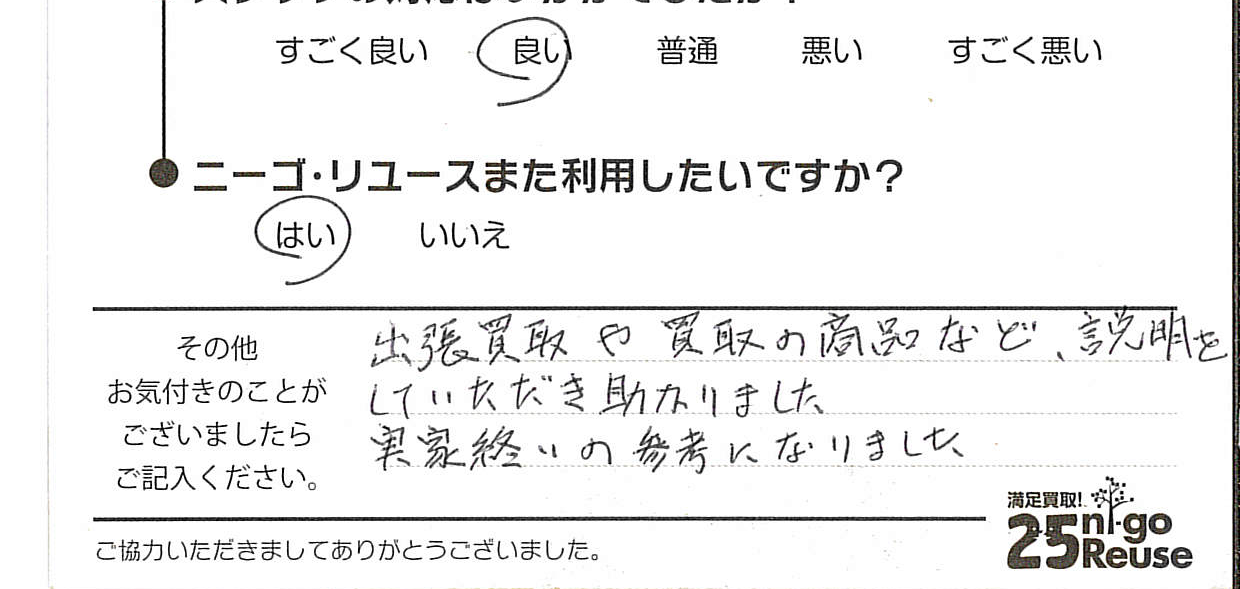 スタッフの対応はいかがでしたか？
すごく良い 良い 普通 悪い すごく悪い
ニーゴ・リユースまた利用したいですか？
はい いいえ
その他
お気付きのことが
ございましたら
ご記入ください。
出張買取や買取の商品など、説明を
していただき助かりました
実家終いの参考になりました
満足買取!
25 ni-go
Reuse
ご協力いただきましてありがとうございました。